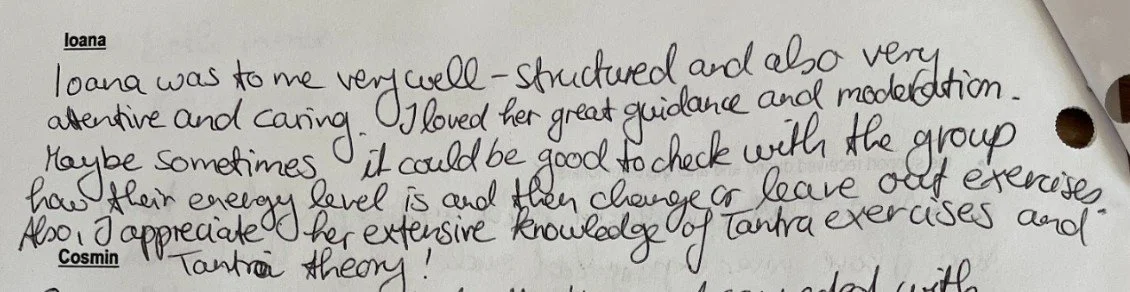 Ioana
Ioana was to me very well-structured and also very
attentive and caring. I loved her great guidance and moderation.
Maybe sometimes it could be good to check with the group
how their energy level is and then change or leave out exercises.
Also, I appreciate her extensive knowledge of Tantra exercises and
Cosmin Tantra theory!
with